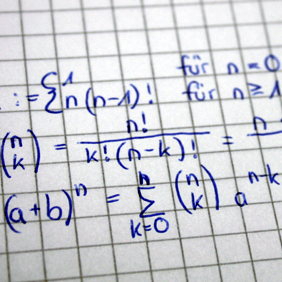 := { 1 für n = 0
n(n-1)! für n ≥ 1
(n k) = n! / k!(n-k)! = n
(a+b)^n = ∑_{k=0}^{n} (n k) a^{n-k}